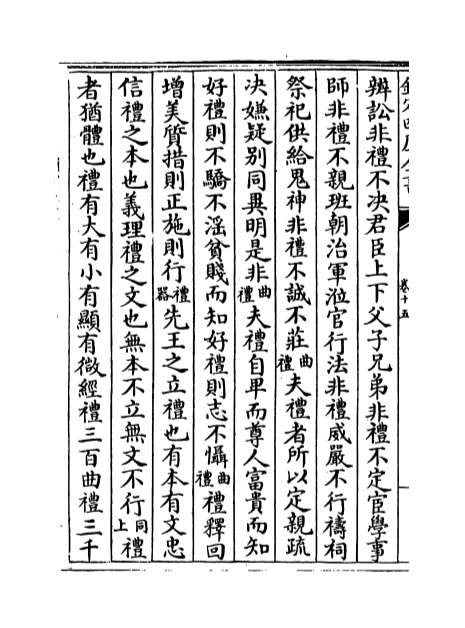 欽定四庫全書
卷十五
辨訟非禮不决君臣上下父子兄弟非禮不定宦學事
師非禮不親班朝治軍涖官行法非禮威嚴不行禱祠
祭祀供給鬼神非禮不誠不莊曲禮夫禮者所以定親疏
决嫌疑别同異明是非曲禮夫禮自卑而尊人富貴而知
好禮則不驕不淫貧賤而知好禮則志不懾曲禮禮釋回
增美質措則正施則行禮器先王之立禮也有本有文忠
信禮之本也義理禮之文也無本不立無文不行同上禮
者猶體也禮有大有小有顯有微經禮三百曲禮三千